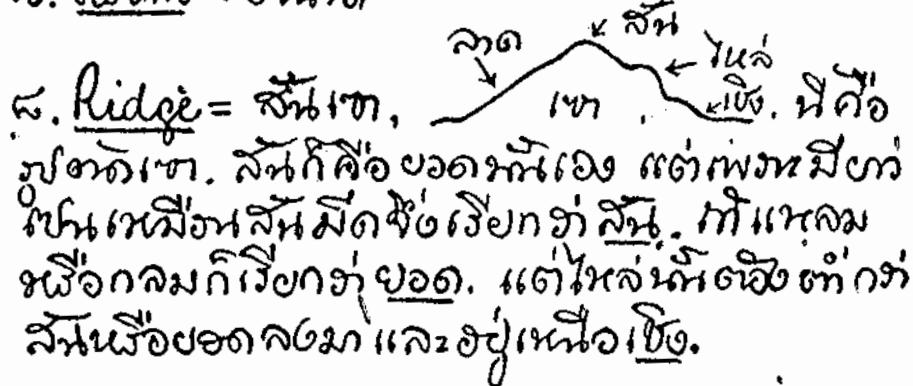 ลาด สัน ไหล่
๘. Ridge = สันเขา. เขา เชิง. นี่คือ
รูปตัดเขา. สันก็คือยอดนั่นเอง แต่เพราะมียาว
เป็นเหมือนสันมีดจึ่งเรียกว่าสัน. ถ้าแหลม
หรือกลมก็เรียกว่ายอด. แต่ไหล่นั้นต้องต่ำกว่า
สันหรือยอดลงมาและอยู่เหนือเชิง.